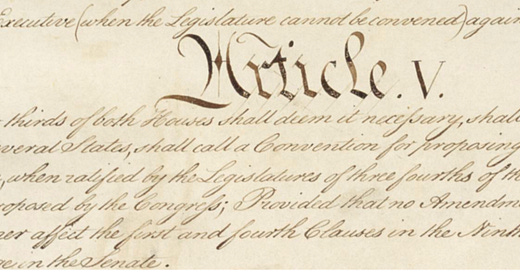 Executive (when the Legislature cannot be convened) again
Article. V.
thirds of both Houses shall deem it necessary, shall
several States, shall call a Convention for proposing
, when ratified by the Legislatures of three fourths of the
proposed by the Congress; Provided that no Amendm
ner affect the first and fourth Clauses in the Ninth
in the Senate.